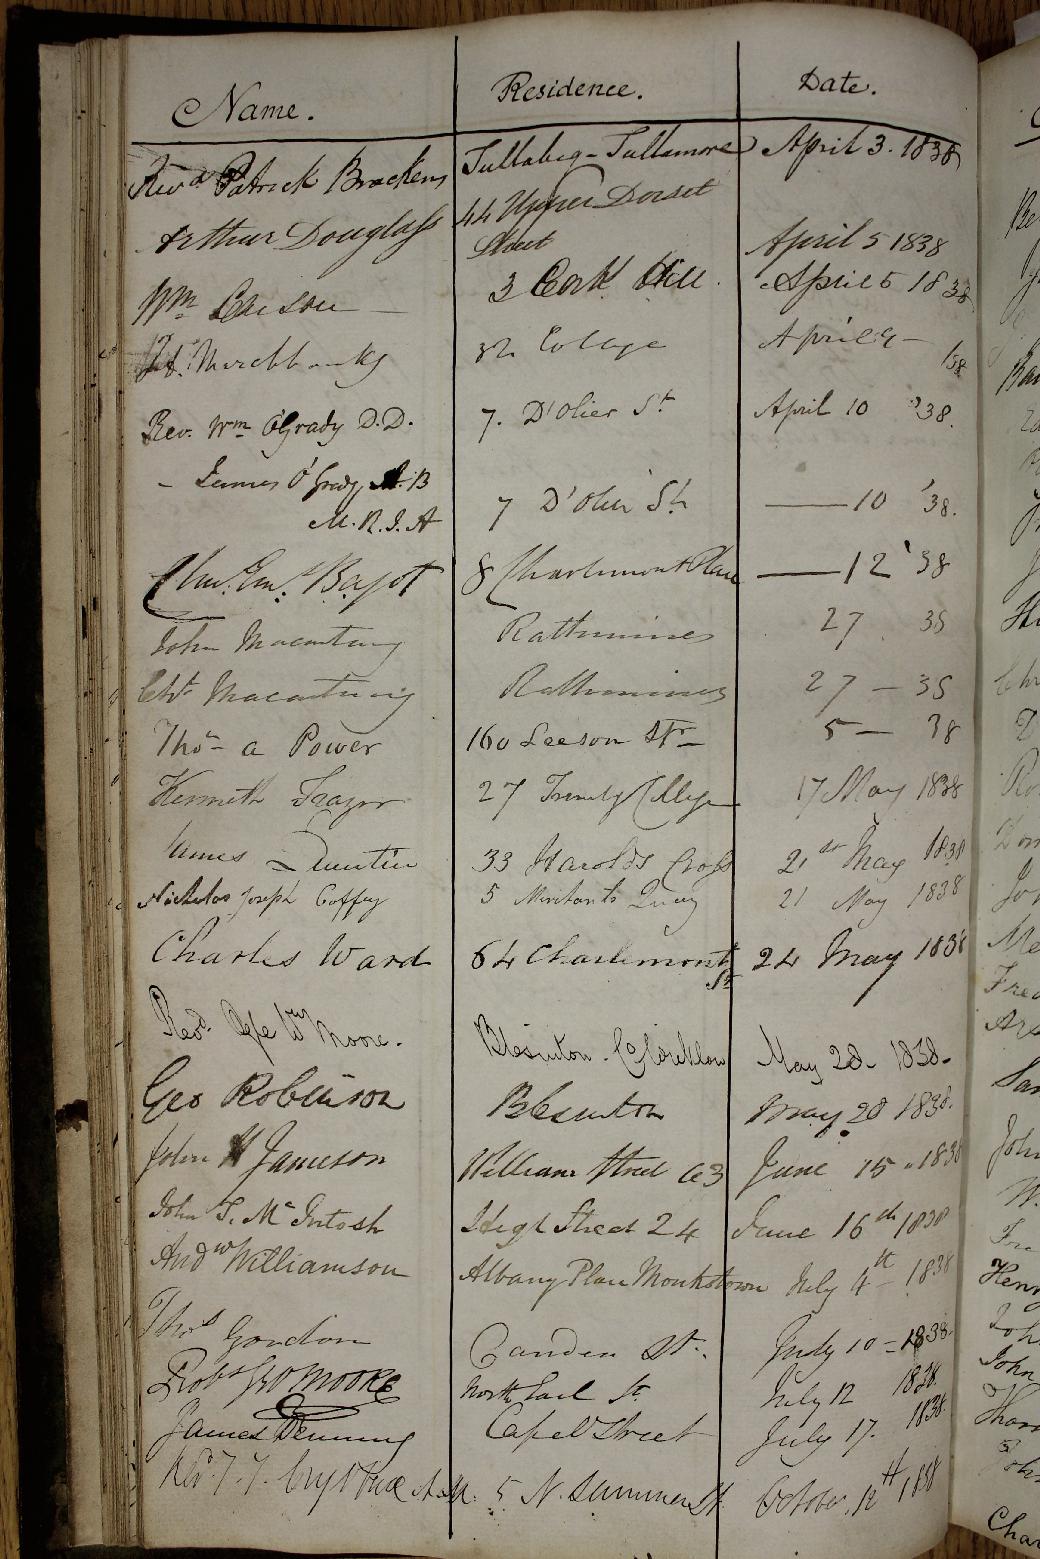 Name. Residence. Date.
Revd Patrick Bracken Tullabeg - Tullamore April 3. 1838
Arthur Douglass 44 Upper Dorset Street April 5 1838
Wm 3 Cork Hill. April 5 1838
32 Colage April 9 - /38
Rev. Wm O'Grady D.D. 7. D'Olier St April 10 '38.
- James O'Grady A.B 7 D'Olier St —— 10 '38.
M.R.I.A
Bagot 8 Charlemont Place —— 12 '38
John Macartney Rathmines 27 38
Macartney Rathmines 27 — 38
Thos a Power 160 Leeson St 5 — 38
Kenneth 27 Trinity College 17 May 1838
James 33 Harolds Cross 21st May 1838
Nicholas Joseph Coffey 5 Merchants Quay 21 May 1838
Charles Ward 64 Charlemont St 24 May 1838
Revd Wm Moore. Blesinton. May 28. 1838.
Geo Robinson Blesinton May 28 1838.
John H Jameson William Street 63 June 15 1838
John T. McIntosh High Street 24 June 16th 1838
Andw Williamson Albany Place Monkstown July 4th 1838
Thos Gordon Camden St. July 10 - 1838.
Robt Geo Moore North Earl St July 12 1838.
James Denning Capel Street July 17. 1838.
Revd A.M. 5 N. Summer St. October 12th 1838